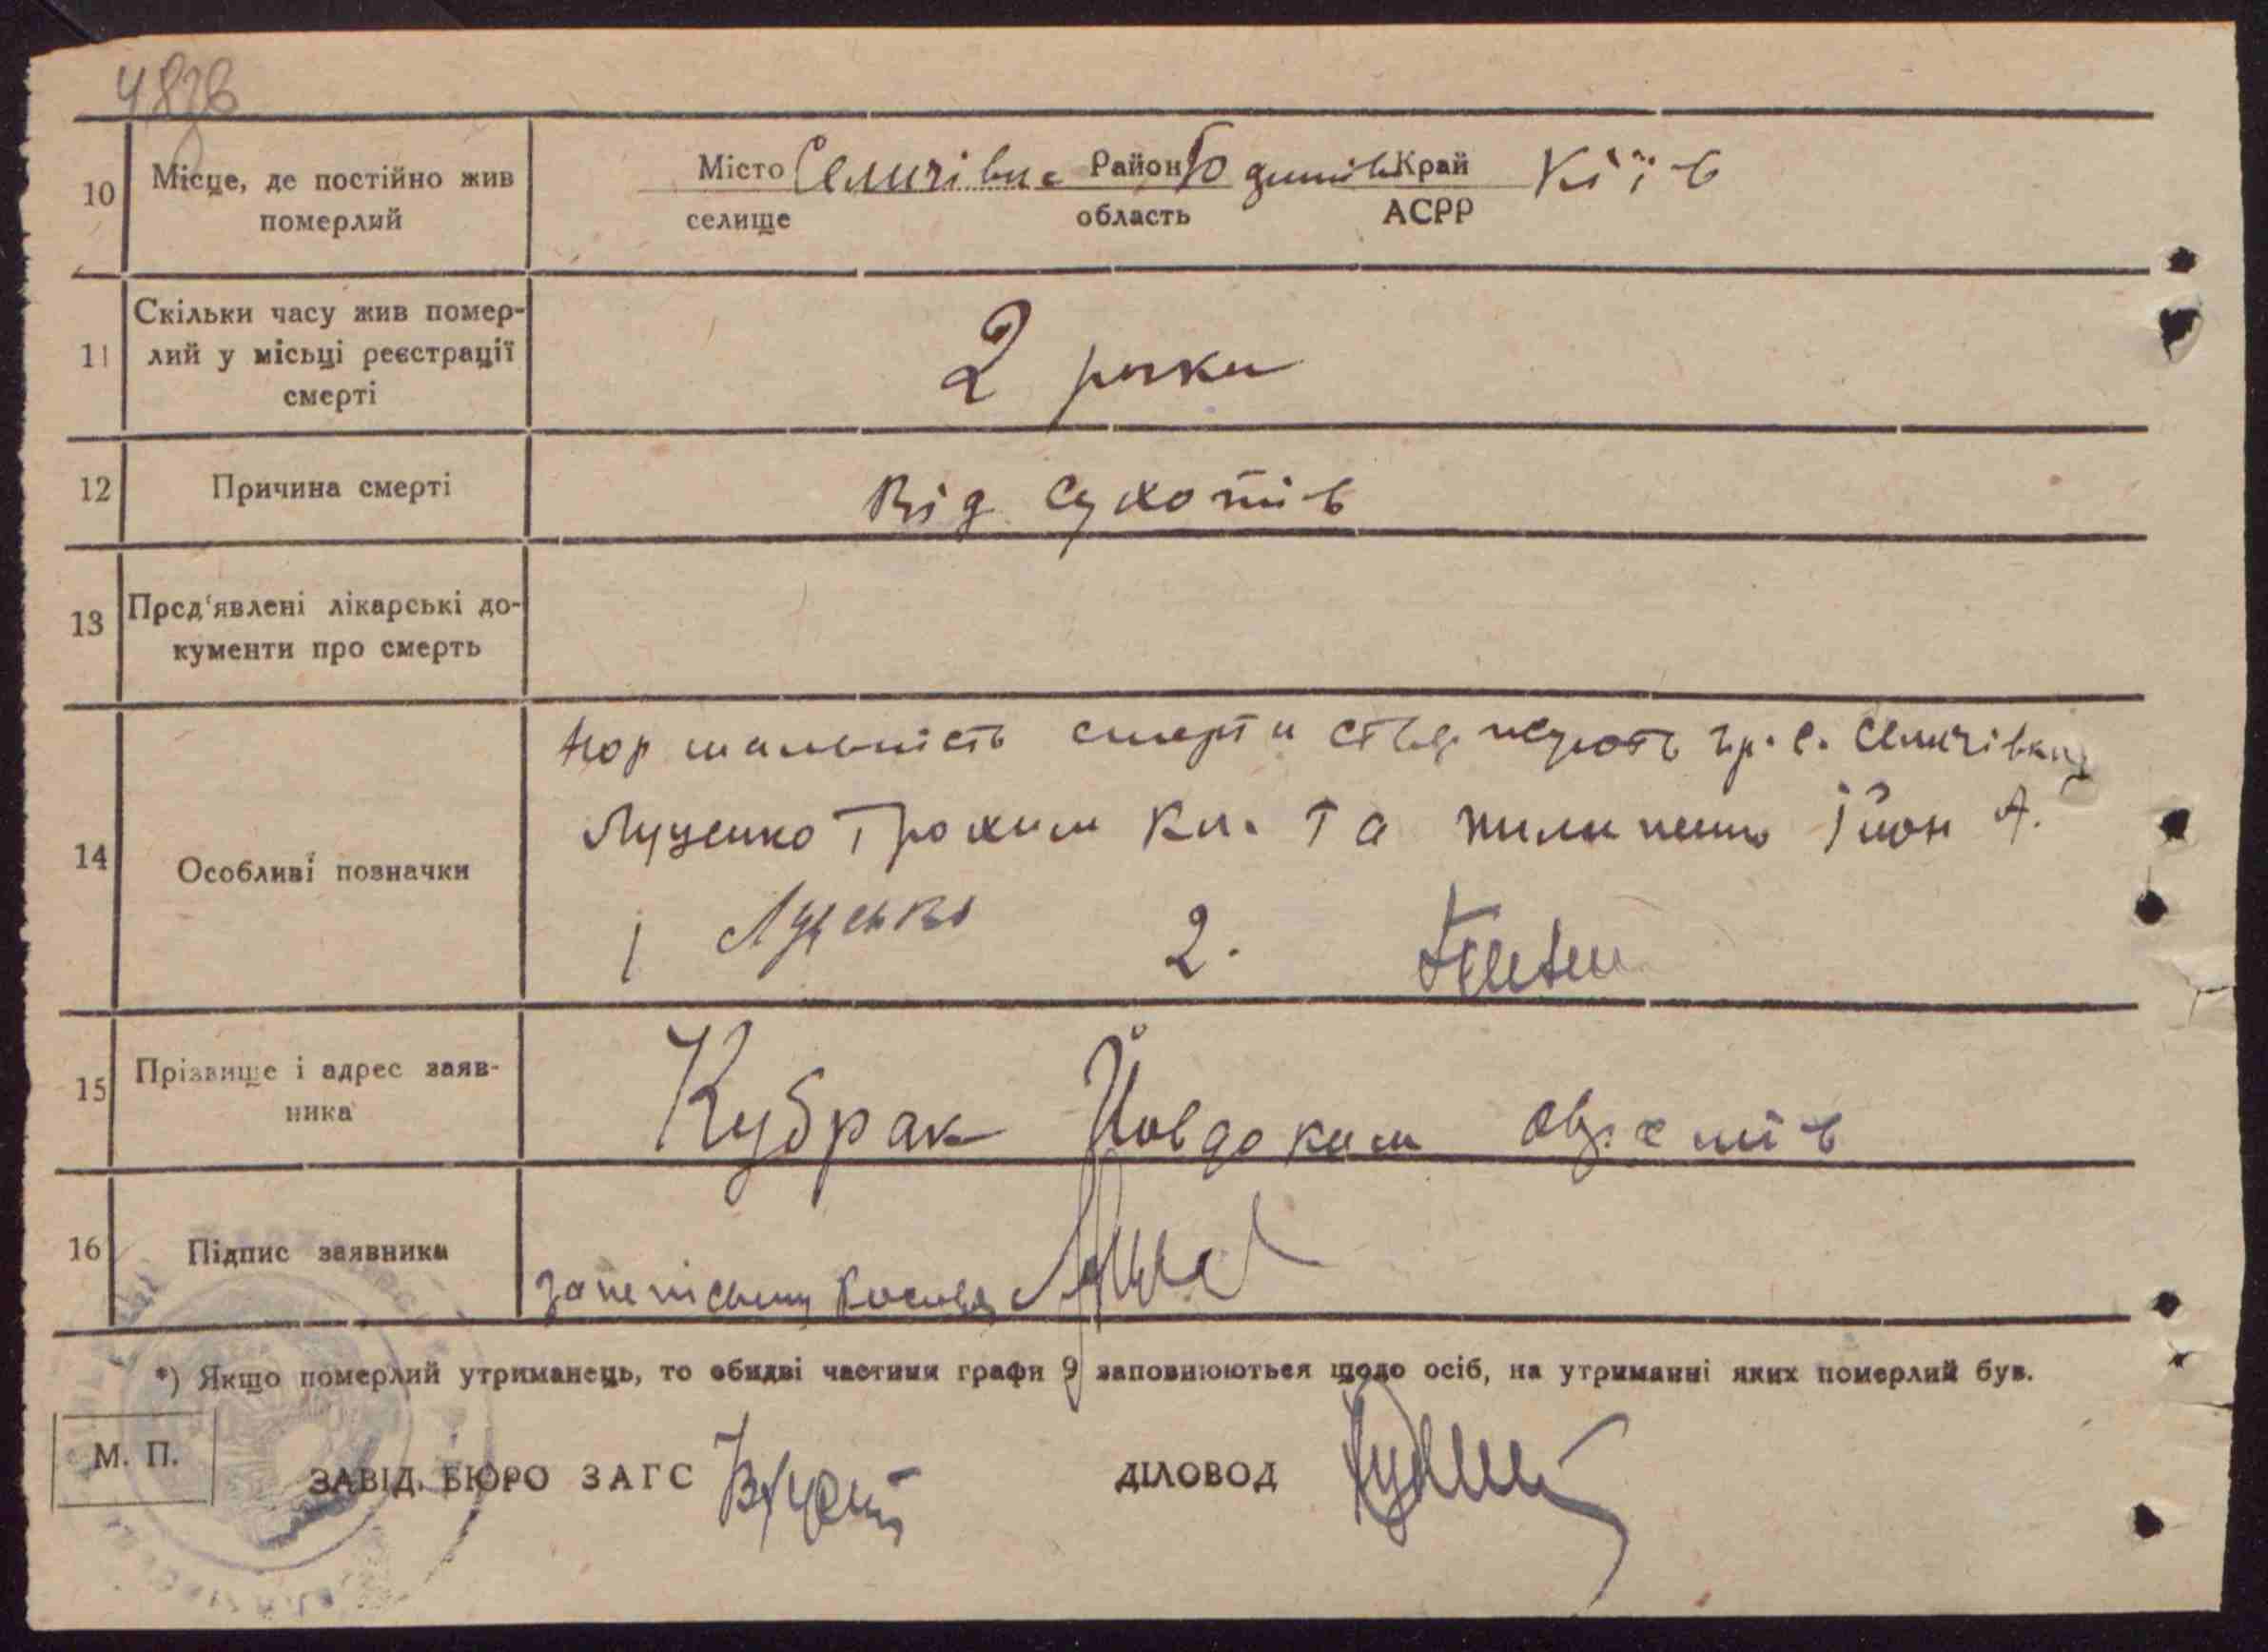 10 Місце, де постійно жив померлий
Місто Селичівка Район Край Київ
селище область АСРР
11 Скільки часу жив помер-
лий у місьці реєстрації
смерті
2 роки
12 Причина смерті
Від сухотів
13 Пред'явлені лікарські до-
кументи про смерть
14 Особливі позначки
Нормальність смерти стверджують гр. с. Селичівки
Луценко Трохим Та А.
1 Луценко 2.
15 Прізвище і адрес заяв-
ника
Кубрак Йовдоким
16 Підпис заявника
за неписьмену
*) Якщо померлий утриманець, то обидві частини графи 9 заповнюються щодо осіб, на утриманні яких померлий був.
М. П.
ЗАВІД. БЮРО ЗАГС ДІЛОВОД